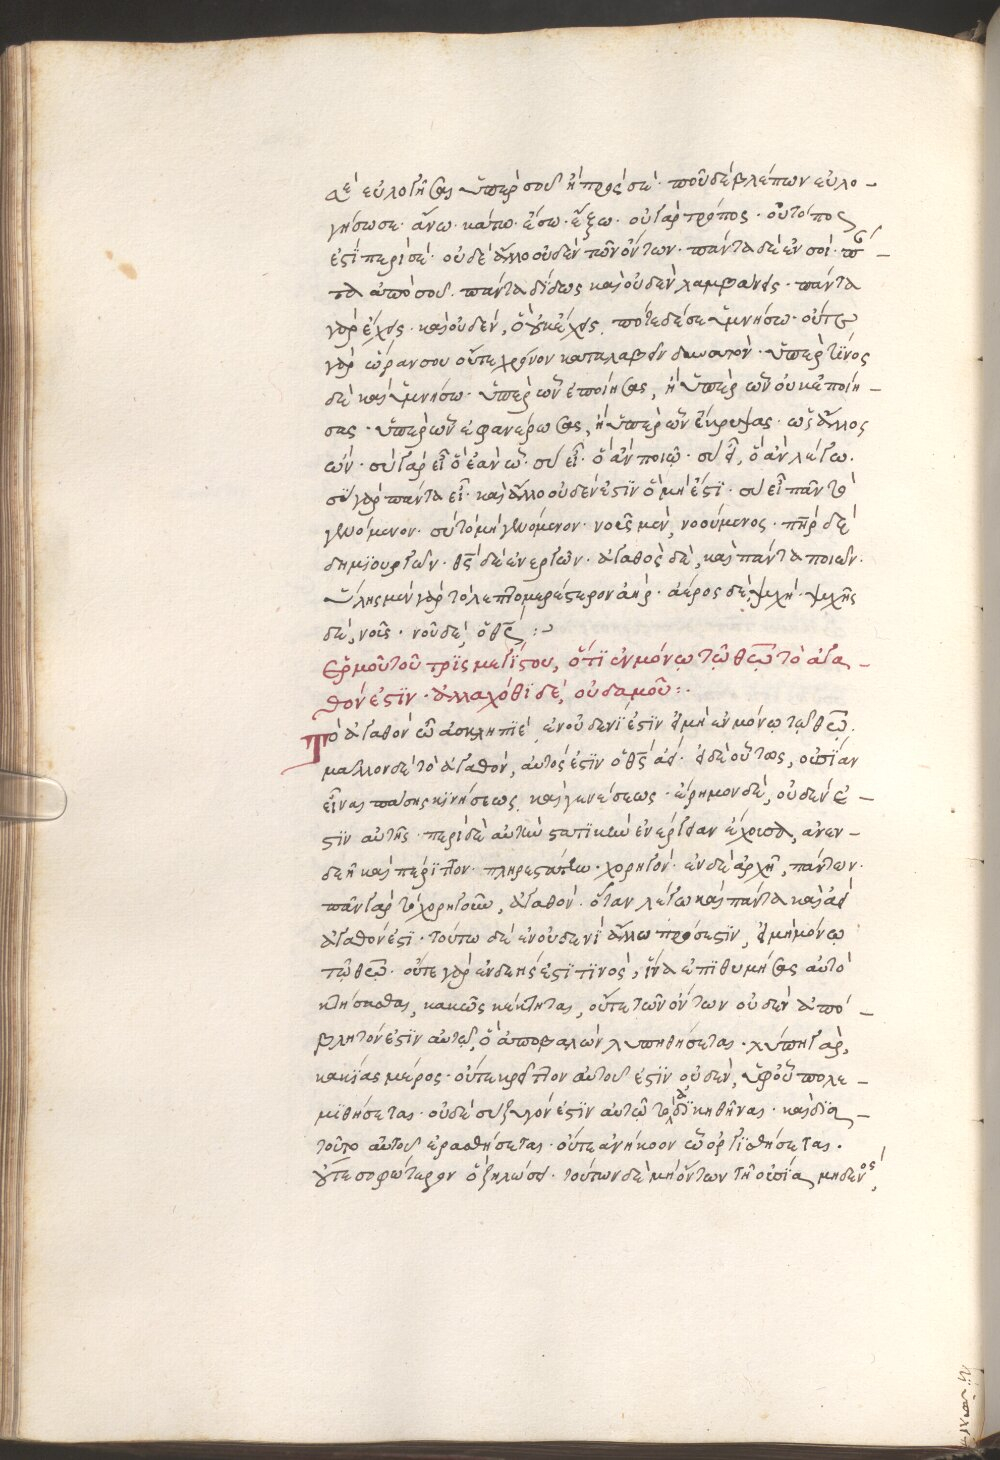 δέ εὐλογῆσαι ὑπέρ σου ἢ πρός σέ· ποῦ δέ βλέπων εὐλο-
γήσω σε· ἄνω· κάτω· ἔσω· ἔξω· οὐ γάρ τρόπος· οὐ τόπος
ἐστί περί σέ· οὐδέ ἄλλο οὐδέν τῶν ὄντων· πάντα δέ ἐν σοί· πά-
τα ἀπό σου. πάντα δίδως καὶ οὐδέν λαμβάνεις· πάντα
γάρ ἔχεις· καὶ οὐδέν, ὃ οὐκ ἔχεις πότε δέ σε ὑμνήσω· οὔτε
γάρ ὥραν σου οὔτε χρόνον καταλαβεῖν δυνατόν· ὑπέρ τίνος
δέ καὶ ὑμνήσω· ὑπέρ ὧν ἐποίησας, ἢ ὑπέρ ὧν οὐκ ἐποίη-
σας· ὑπέρ ὧν ἐφανέρωσας, ἢ ὑπέρ ὧν ἔκρυψας· ὡς ἄλλος
ὤν· σύ γάρ εἶ ὃ ἐάν ὦ· σύ εἶ· ὃ ἄν ποιῶ· σύ εἶ, ὃ ἄν λέγω.
σύ γάρ πάντα εἶ· καὶ ἄλλο οὐδέν ἐστϊν ὃ μή ἐστϊ· σύ εἶ πᾶν τὸ
γενόμενον· σύ τό μή γενόμενον· νοῦς μέν, νοούμενος· πηρ δέ
δημϊουργῶν· θς δέ ἐνεργῶν· ἀγαθός δέ, καὶ πάντα ποιῶν·
ὕλης μέν γάρ τό λεπτομερέστερον ἀήρ· ἀέρος δέ, ψυχή· ψυχῆς
δέ, νοῦς· νοῦ δέ, ὁ θς :~
Ἑρμοῦ τοῦ τρῒς μεγίστου, ὅτϊ ἐν μόνῳ τῷ θεῷ τὸ ἀγα-
θόν ἐστϊν· ἀλλαχόθϊ δέ, οὐδαμοῦ :·
Τὸ ἀγαθόν ὦ ἀσκληπϊέ ἐν οὐδενΐ ἐστϊν εἰ μή ἐν μόνῳ τῷ θεῷ.
μᾶλλον δέ τὸ ἀγαθόν, αὐτός ἐστϊν ὁ θς ἀεί· εἰ δέ οὕτως, οὐσΐαν
εἶναι πάσης κϊνήσεως καὶ γενέσεως· ἔρημον δέ, οὐδέν ἐ-
στϊν αὐτῆς· περί δέ αὐτήν στατϊκήν ἐνέργειαν ἔχουσα, ἀνεν-
δεῆ καὶ πέρϊττον· πληρεστάτω· χορηγόν· ἐν δέ ἀρχῇ, πάντων·
πᾶν γάρ τὸ χορηγοῦν, ἀγαθόν· ὅταν λέγω καὶ πάντα καὶ ἀεί
ἀγαθόν ἐστϊ· τούτω δέ ἐν οὐδενϊ ἄλλω πρόσεστϊν, εἰ μή μόνῳ
τῷ θεῷ· οὔτε γάρ ἐνδεής ἐστϊ τϊνός, ἵνα ἐπϊθυμήσας αὐτό
κτήσασθαι, κακῶς κέκτηται, οὔτε τῶν ὄντων οὐδέν ἀπό-
βλητόν ἐστϊν αὐτῷ, ὃ ἀποβαλών λυπηθήσεται· λύπη γάρ,
κακΐας μέρος· οὔτε κρεῖττον αὐτοῦ ἐστϊν οὐδέν, ὑφ' οὗ πολε-
μϊθήσεται· οὐδέ συζυγόν ἐστϊν αὐτῷ τὸ ἀδϊκηθῆναι· καὶ δϊα
τοῦτο αὐτοῦ ἐρασθήσεται· οὔτε ἀνήκοον ὧ ὀργϊσθήσεται.
οὔτε σοφώτερον ὃ ζηλώσει· τούτων δέ μή ὄντων τῇ οὐσΐᾳ μηδενός,